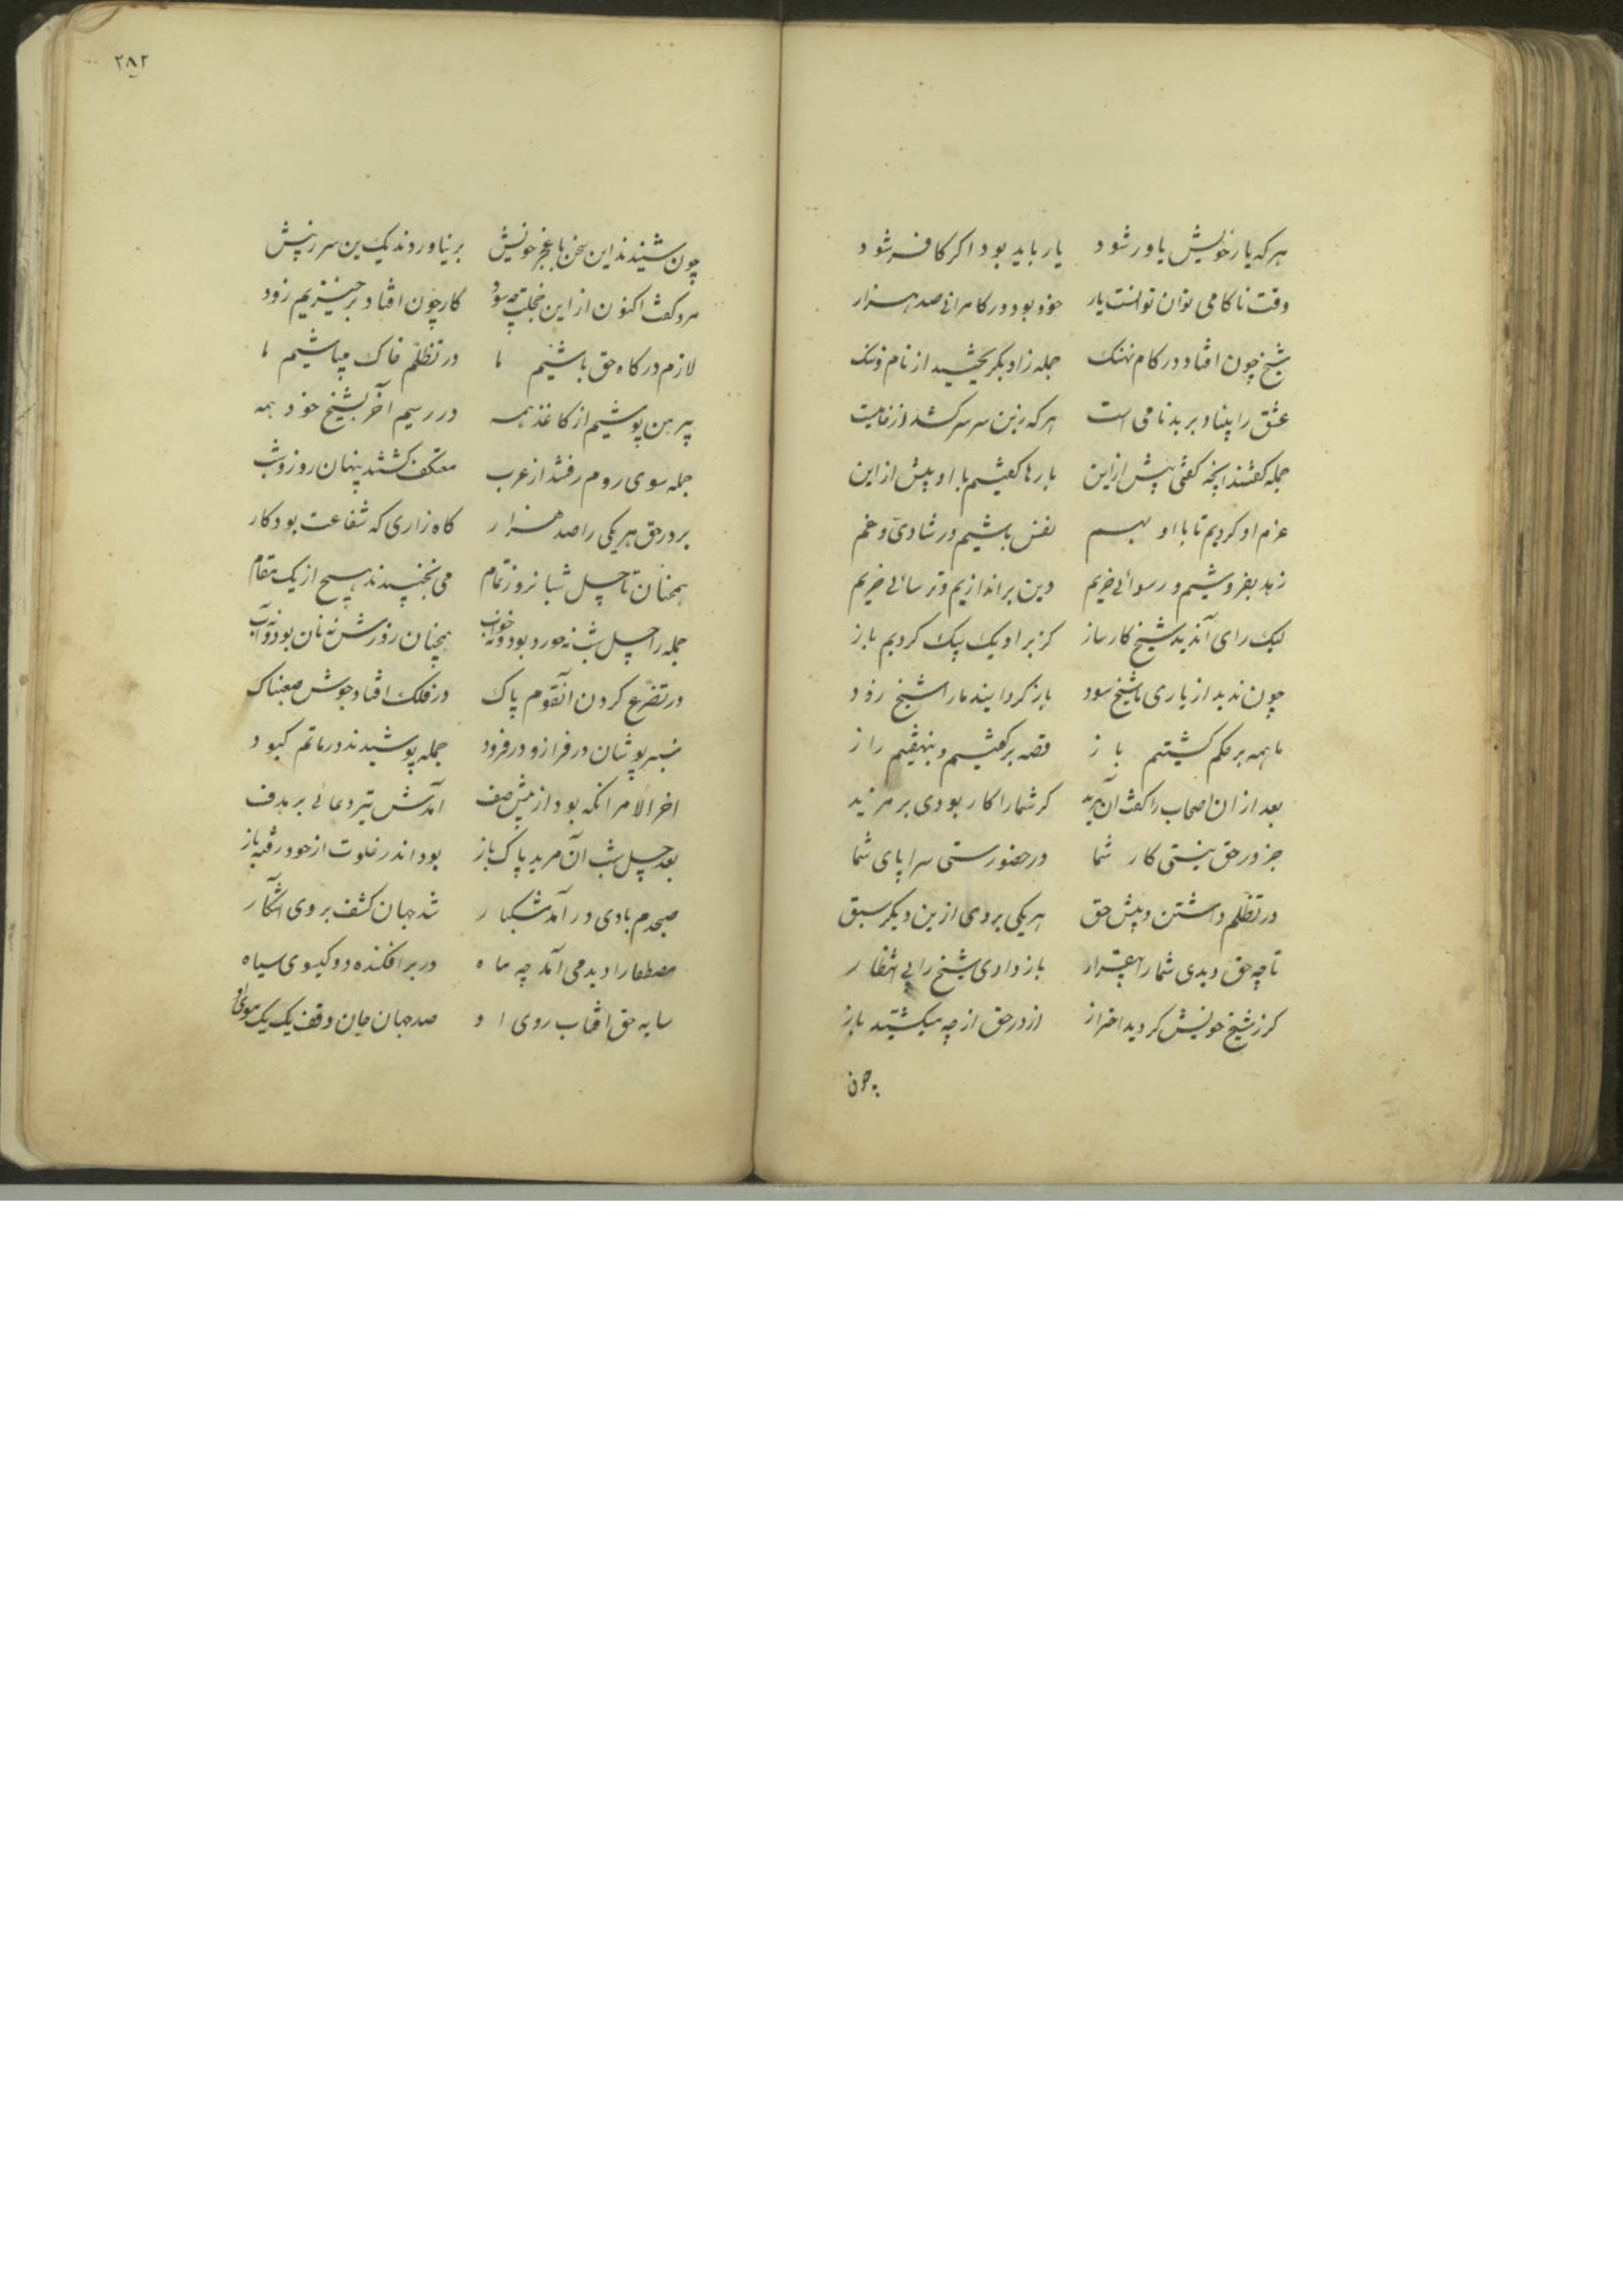 هرکه یار خویش یاور شود یار باید بود اکر کافر شود
وقت ناکامی توان دانست یار خود بود در کامرانی صد هزار
شیخ چون افتاد در کام نهنک جمله زو بگریختید از نام و ننک
عشق را بنیاد بر بدنامی است هرکه زین سر سرکشد از خامیست
جمله کفتند آنچه کفتی پیش ازین بارها کفتیم با او پیش از این
عزم او کردیم تا با او بهم نفس باشیم در شادی و غم
زهد بفروشیم و رسوائی خریم دین براندازیم و ترسائی خریم
لیک رای آن دید شیخ کارساز کز بر او یک بیک کردیم باز
چون ندید از یاری ما شیخ سود باز کردانید ما را شیخ زود
ما همه بر حکم کشتیم باز قصه برکفتیم و ننهفتیم راز
بعد از ان اصحاب را کفت آن مرید کر شما را کار بودی بر مزید
جز در حق نیستی کار شما در حضورستی سراپای شما
در تظلم داشتن در پیش حق هریکی بردی ازین دیکر سبق
تا چو حق دیدی شما را بیقرار باز دادی شیخ را بی انتظار
کر ز شیخ خویش کردید احتراز از در حق از چه میکشتید باز
چون
۲۸۲
چون شنیدند این سخن با عجز خویش برنیاوردند یک تن سر ز پیش
مرد کفت اکنون از این خجلت چه سود کار چون افتاد برخیزیم زود
لازم درکاه حق باشیم ما در تظلم خاک میپاشیم ما
پیرهن پوشیم از کاغذ همه در رسیم آخر بشیخ خود همه
جمله سوی روم رفتند از عرب معتکف کشتند پنهان روز و شب
بر در حق هریکی را صد هزار کاه زاری که شفاعت بود کار
همچنان تا چهل شبانروز تمام می نجنبیدند هیچ از یک مقام
جمله را چهل شب نه خورد بود و نه خواب همچنان روزش نه نان بود و نه آب
در تضرع کردن آنقوم پاک در فلک افتاد جوش صعبناک
سبزپوشان در فراز و در فرود جمله پوشیدند در ماتم کبود
اخر الامر آنکه بود از پیش صف آمدش تیر دعائی بر هدف
بعد چهل شب آن مرید پاک باز بود اندر خلوت از خود رفته باز
صبحدم بادی درآمد مشکبار شد جهان کشف بروی آشکار
مصطفا را دید می آمد چه ماه در بر افکنده دو کیسوی سیاه
سایه حق افتاب روی او صد جهان جان وقف یک یک موی او